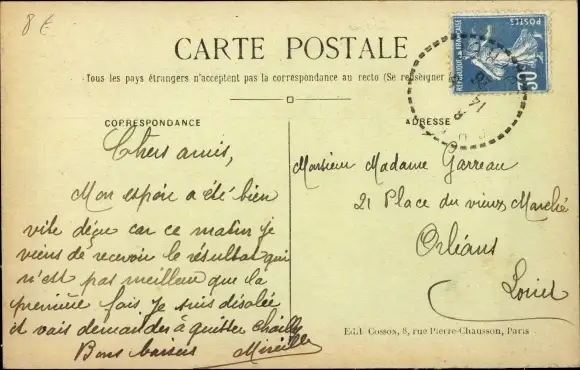 8 €
CARTE POSTALE
Tous les pays étrangers n'acceptent pas la correspondance au recto (Se renseigner
CORRESPONDANCE
Chers amis,
Mon espoir a été bien
vite déçue car ce matin je
viens de recevoir le résultat qui
n'est pas meilleur que la
première fois. Je suis désolée
et vais demander à quitter Chailly
Bons baisers Mireille
ADRESSE
Monsieur Madame Garreau
21 Place du vieux Marché
Orléans
Loiret
Edit. Cossox, 8, rue Pierre-Chausson, Paris
REPUBLIQUE FRANÇAISE
POSTES